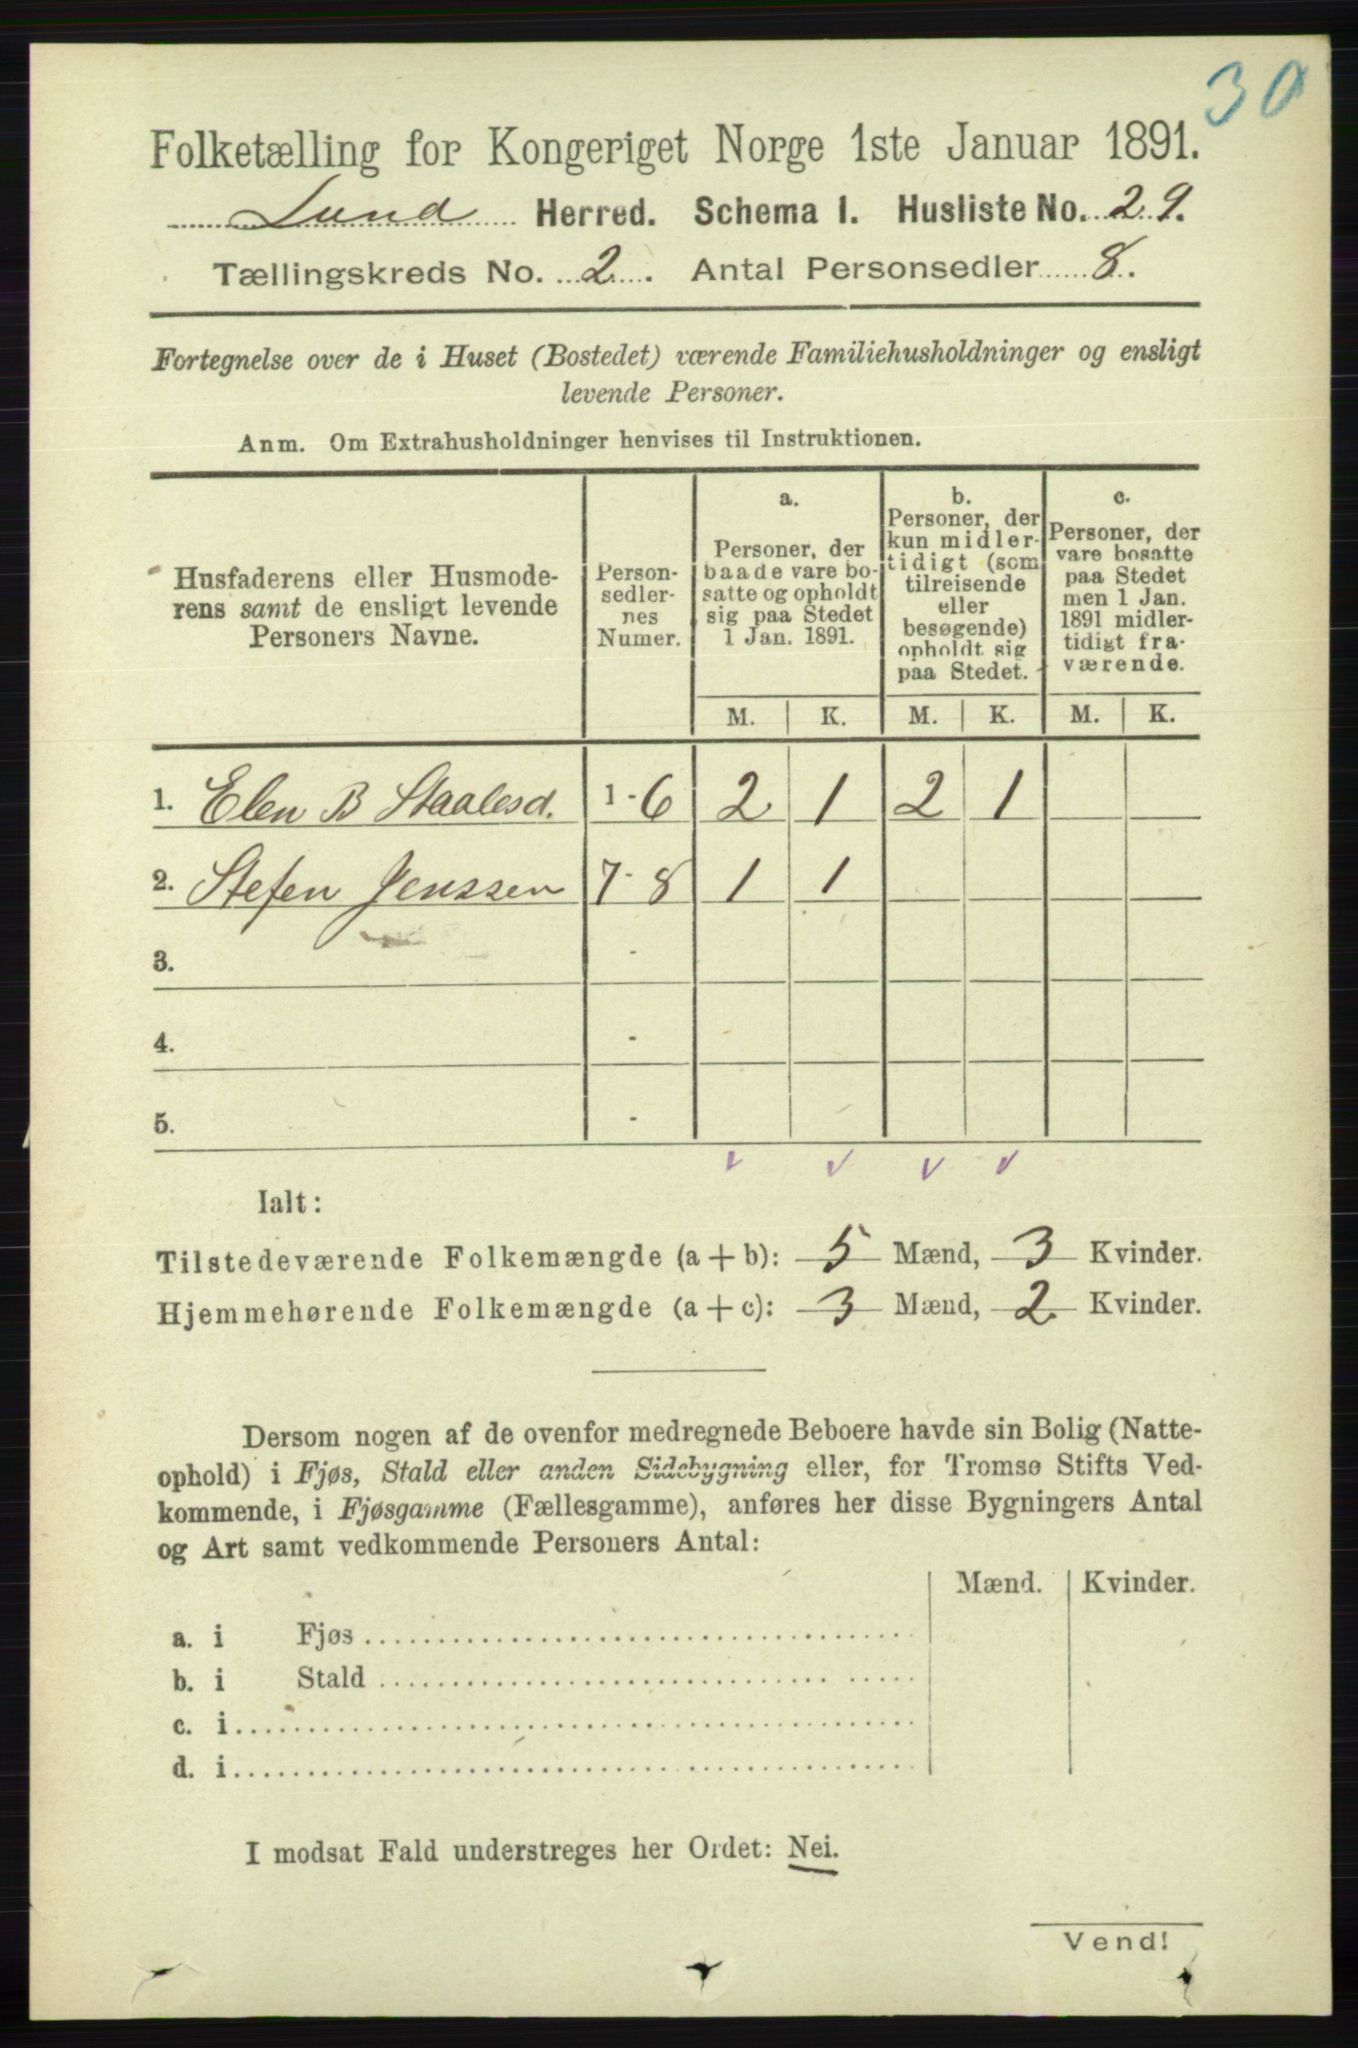 30
Folketælling for Kongeriget Norge 1ste Januar 1891.
Lund Herred. Schema I. Husliste No. 29.
Tællingskreds No. 2. Antal Personsedler 8.
Fortegnelse over de i Huset (Bostedet) værende Familiehusholdninger og ensligt
levende Personer.
Anm. Om Extrahusholdninger henvises til Instruktionen.
Husfaderens eller Husmode-
rens samt de ensligt levende
Personers Navne.
Person-
sedler-
nes
Numer.
a.
Personer, der
baade vare bo-
satte og opholdt
sig paa Stedet
1 Jan. 1891.
b.
Personer, der
kun midler-
tidigt (som
tilreisende
eller
besøgende)
opholdt sig
paa Stedet.
c.
Personer, der
vare bosatte
paa Stedet
men 1 Jan.
1891 midler-
tidigt fra-
værende.
M. K. M. K. M. K.
1. Elen B Staalesd. 1-6 2 1 2 1
2. Stefen Jenssen 7-8 1 1
3. -
4. -
5. -
Ialt:
Tilstedeværende Folkemængde (a+b): 5 Mænd, 3 Kvinder.
Hjemmehørende Folkemængde (a+c): 3 Mænd, 2 Kvinder.
Dersom nogen af de ovenfor medregnede Beboere havde sin Bolig (Natte-
ophold) i Fjøs, Stald eller anden Sidebygning eller, for Tromsø Stifts Ved-
kommende, i Fjøsgamme (Fællesgamme), anføres her disse Bygningers Antal
og Art samt vedkommende Personers Antal:
Mænd. Kvinder.
a. i Fjøs
b. i Stald
c. i
d. i
I modsat Fald understreges her Ordet: Nei.
Vend!